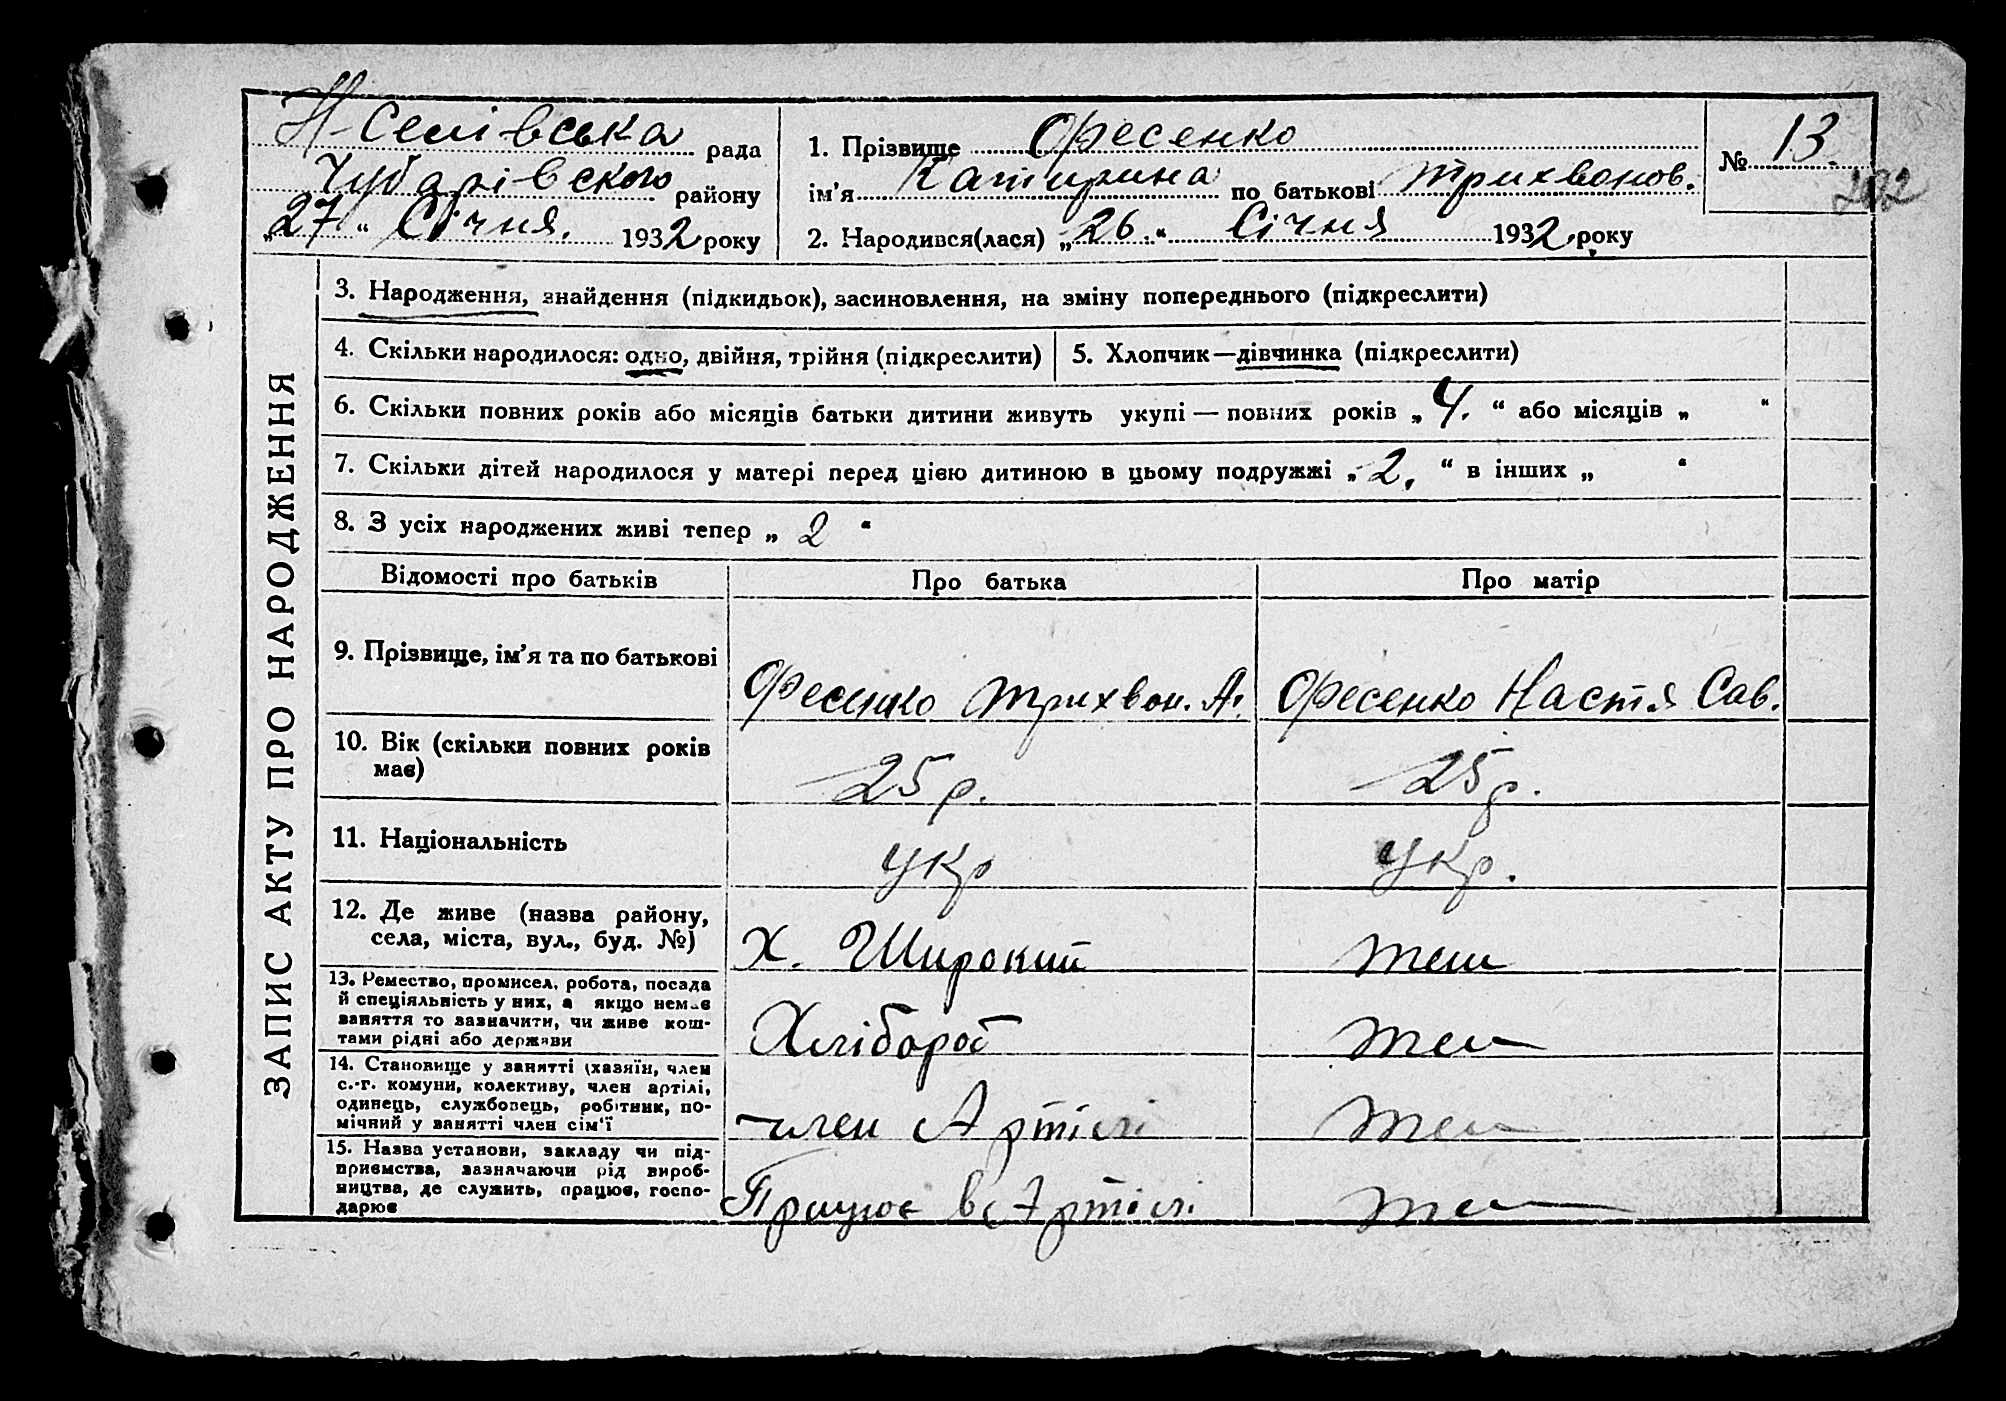 Н-Селівська рада
Чубарівського району
„27“ Січня. 1932 року
1. Прізвище Фесенко
ім'я Катирина по батькові Трихвонов.
2. Народився(лася) „26.“ Січня 1932 року
№ 13.
202
ЗАПИС АКТУ ПРО НАРОДЖЕННЯ
3. Народження, знайдення (підкидьок), засиновлення, на зміну попереднього (підкреслити)
4. Скільки народилося: одно, двійня, трійня (підкреслити)
5. Хлопчик—дівчинка (підкреслити)
6. Скільки повних років або місяців батьки дитини живуть укупі — повних років „4.“ або місяців „ “
7. Скільки дітей народилося у матері перед цією дитиною в цьому подружжі „2.“ в інших „ “
8. З усіх народжених живі тепер „2“
Відомості про батьків
Про батька
Про матір
9. Прізвище, ім'я та по батькові
Фесенко Трихвон. А.
Фесенко Настя Сав.
10. Вік (скільки повних років
має)
25 р.
25 р.
11. Національність
укр
укр.
12. Де живе (назва району,
села, міста, вул., буд. №)
Х. Широкий
теш
13. Ремество, промисел, робота, посада
й спеціяльність у них, а якщо немає
заняття то зазначити, чи живе кош-
тами рідні або держави
Хлібороб
теш
14. Становище у занятті (хазяїн, член
с.-г. комуни, колективу, член артілі,
одинець, службовець, робітник, по-
мічний у занятті член сім'ї
член Артілі
теш
15. Назва установи, закладу чи під-
приємства, зазначаючи рід вироб-
ництва, де служить, працює, госпо-
дарює
Працює в Артілі
теш